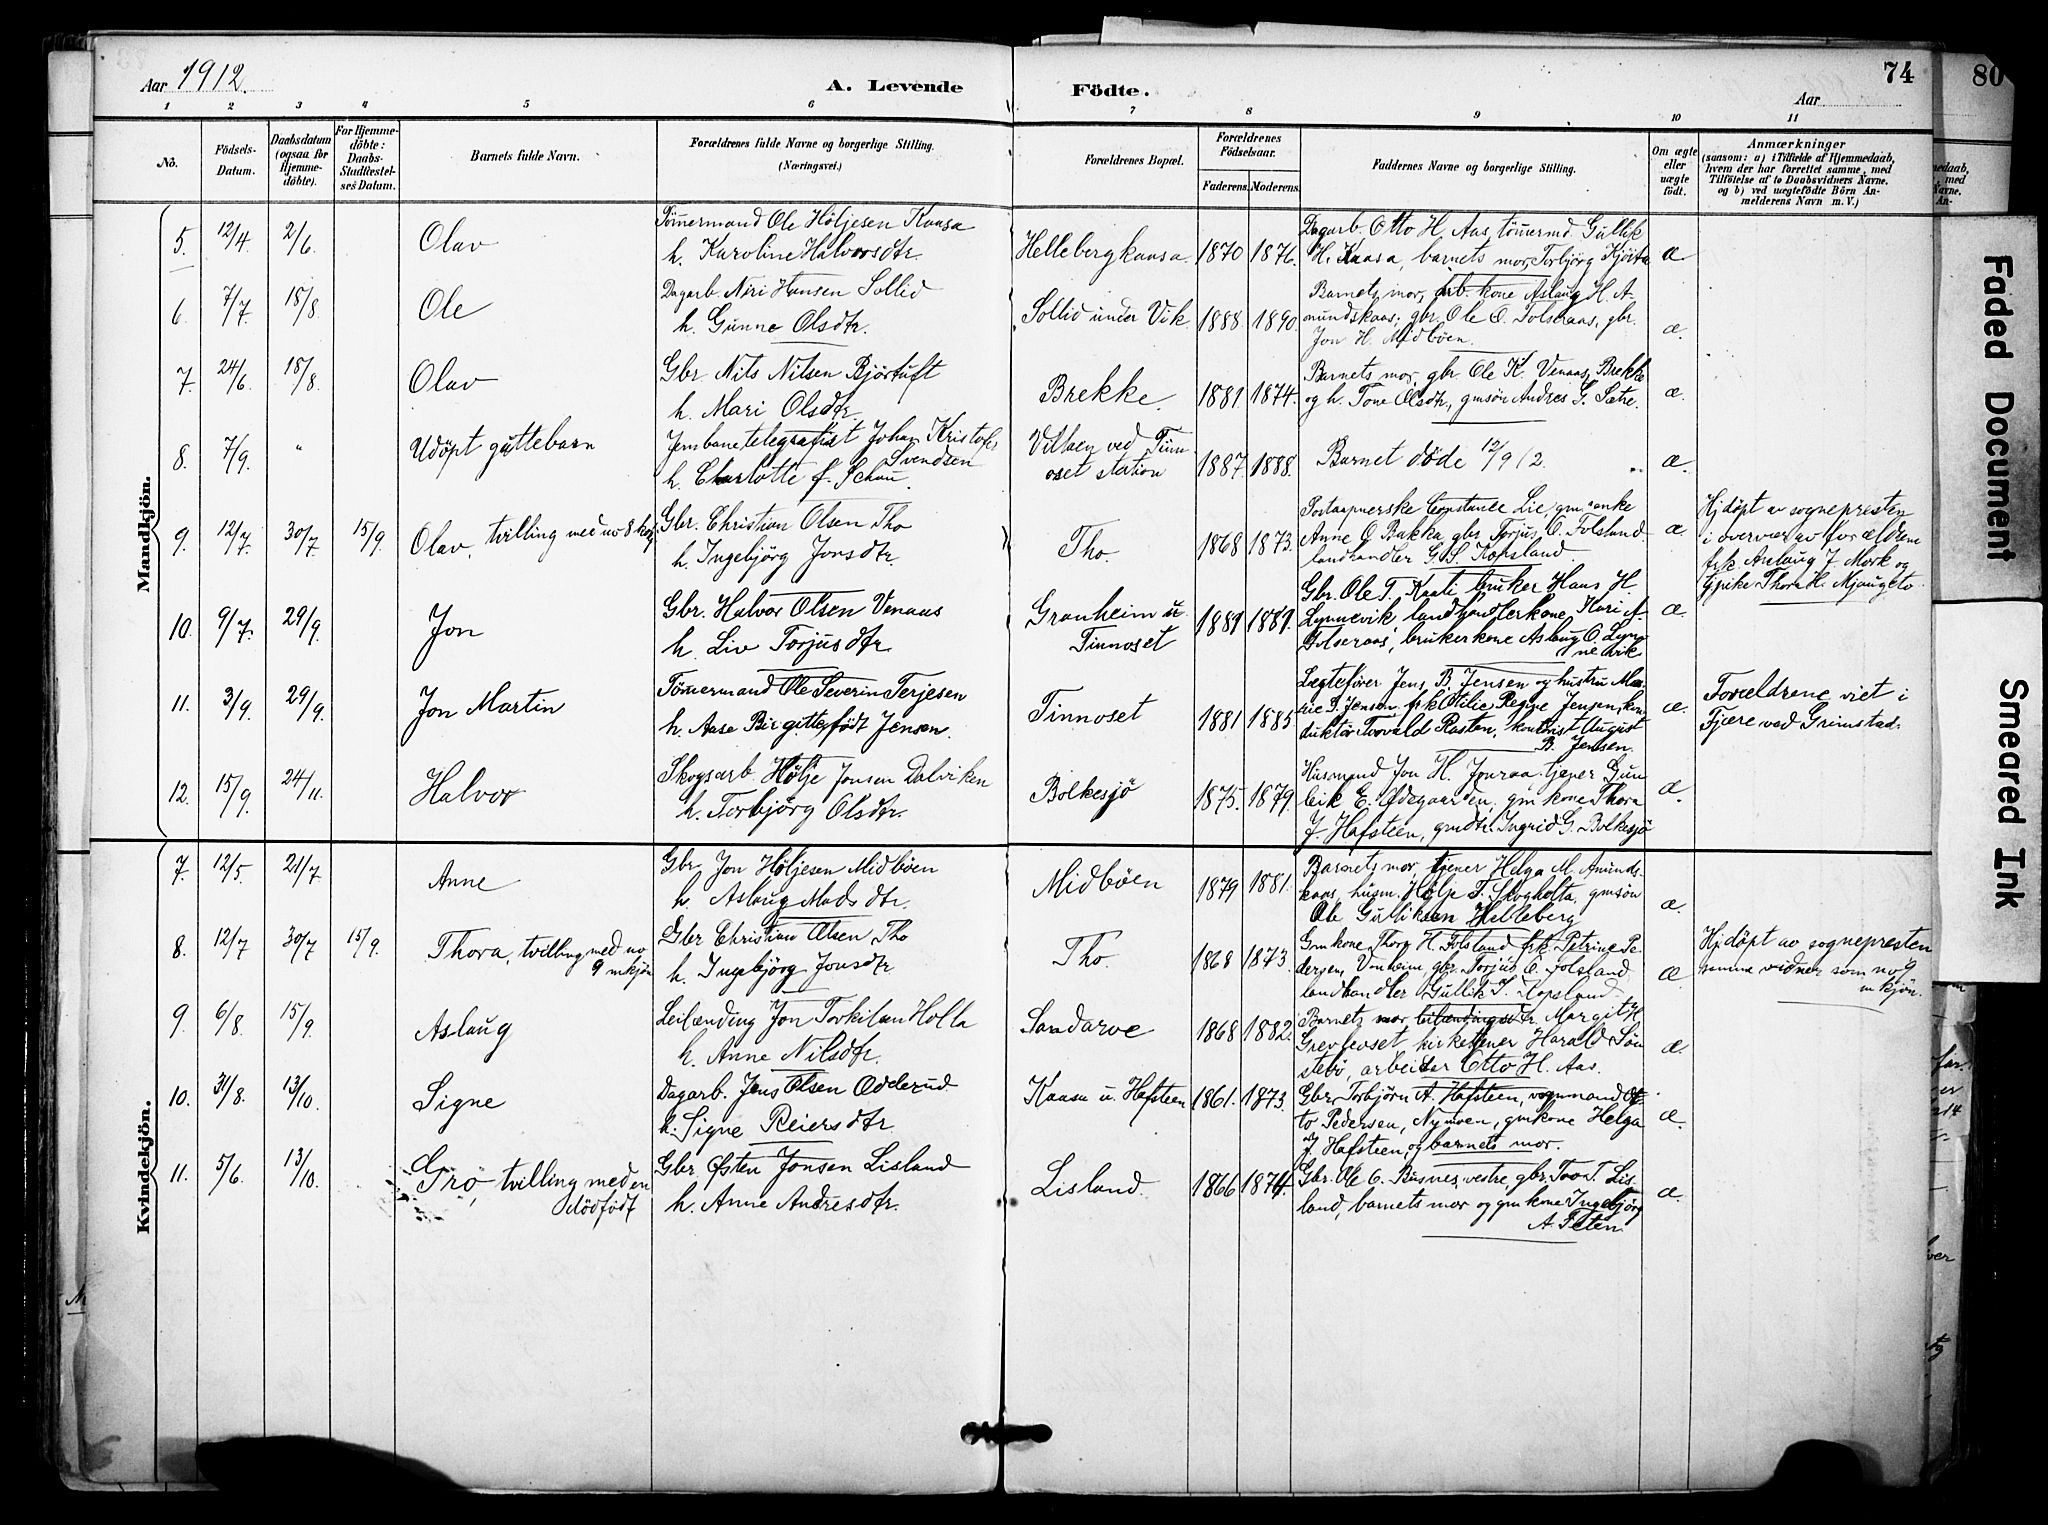 Aar 1912.
A. Levende Födte.
Aar
74
80
1 2 3 4 5 6 7 8 9 10 11
No.
Födsels-
Datum.
Daabsdatum
(ogsaa for
Hjemme-
döbte).
For Hjemme-
döbte:
Daabs-
Stadfæstel-
ses Datum.
Barnets fulde Navn.
Forældrenes fulde Navne og borgerlige Stilling.
(Næringsvei.)
Forældrenes Bopæl.
Forældrenes
Födselsaar.
Faderens. Moderens.
Faddernes Navne og borgerlige Stilling.
Om ægte
eller
uægte
födt.
Anmærkninger
(saasom: a) i Tilfælde af Hjemmedaab,
hvem der har forrettet samme, med
Tilföielse af to Daabsvidners Navne.
og b) ved uægtefödte Börn An-
melderens Navn m. V.)
Mandkjön.
5. 12/4 2/6 Olav
Tömermand Ole Höljesen Kaasa
h. Karoline Halvorsdtr.
Hellebergkaasa. 1870 1876.
Dagarb. Otto H. Aas, tömermd. Gullik
H. Kaasa, barnets mor, Torbjörg Kjörta
æ
6. 7/7. 18/8. Ole
Dagarb. Niri Hansen Sollid
h. Gunne Olsdtr.
Sollid under Vik. 1888 1890.
Barnets mor, arb. kone Aslaug H. A-
mundskaas; gbr. Ole O. Tolseraas, gbr.
Jon H. Midböen.
æ.
7. 24/6. 18/8. Olav
Gbr. Nils Nilsen Björtuft
h. Mari Olsdtr.
Brekke. 1881. 1874.
Barnets mor, gbr. Ole K. Venaas, Brekke
og h. Tone Olsdtr, gmsön Andres G. Sætre.
æ.
8. 7/9. " Udöpt guttebarn
Jernbanetelegrafist Johan Kristofer
Svendsen
h. Charlotte f. Schau.
Villaen ved Tinn-
oset station
1887. 1888.
Barnet döde 12/9 12. æ.
9. 12/7. 30/7 15/9. Olav, tvilling med no 8 kvkj.
Gbr. Christian Olsen Tho
h. Ingebjörg Jonsdtr.
Tho. 1868 1873.
Postaapnerske Constance Lie, gm.enke
Anne O. Bakka, gbr. Torjus O. Folsland
landhandler G. S. Kopsland
æ
Hj. döpt av sognepresten
i overvær av forældrene
frk. Aslaug J. Mork og
tj.pike Thora H. Mjaugeto.
10. 9/7. 29/9. Jon
Gbr. Halvor Olsen Venaas
h. Liv Torjusdtr.
Granheim u.
Tinnoset
1889 1889.
Gbr. Ole T. Kaali, bruker Hans H.
Lynnevik, landhandlerkone Kari A.
Tolseraas, brukerkone Aslaug O. Lyn-
nevik
æ.
11. 3/9. 29/9. Jon Martin
Tömermand Ole Severin Terjesen
h. Aase Birgitte, födt Jensen.
Tinnoset 1881 1885
Lægtefører Jens B. Jensen og hustru Ma-
rie S. Jensen frk Otilie Regine Jensen, kon-
duktör Torvald Rasten, kontorist August
B. Jensen.
æ.
Forældrene viet i
Fjære ved Grimstad.
12. 15/9. 24/11. Halvor
Skogsarb. Hölje Jonsen Dalviken
h. Torbjörg Olsdtr.
Bolkesjö 1875. 1879.
Husmand Jon H. Jonraa tjener Gun-
leik E. Ødegaarden, gm kone Thora
J. Hafsteen, gmdtr. Ingrid G. Bolkesjö
æ.
Kvindekjön.
7. 12/5. 21/7. Anne
Gbr. Jon Höljesen Midböen
h. Aslaug Madsdtr.
Midböen 1879 1881.
Barnets mor, tjener Helga M. Amunds-
kaas, husm. Hölje T. Skogholta, gmsön
Ole Gulliksen Helleberg.
æ.
8. 12/7 30/7 15/9. Thora, tvilling med no
9 mkjön
Gbr Christian Olsen Tho
h. Ingebjörg Jonsdtr.
Tho. 1868 1873.
Gmkone Thora H. Folsland frk. Petrine Pe-
dersen, Vonheim, gbr. Torjus O. Folsland,
landhandler Gullik S. Kopsland.
æ
Hj. döpt av sognepresten
samme vidner som no 9
mkjön.
9. 6/8. 15/9. Aslaug
Leilænding Jon Torkilsen Holla
h. Anne Nilsdtr.
Sandarve 1868 1882.
Barnets mor, leilændingsdtr. Margit H.
Grevleoset kirketjener Harald Sön-
stebö, arbeider Otto H. Aas.
æ.
10. 31/8. 13/10. Signe
Dagarb. Jens Olsen Odderud
h. Signe Reiersdtr.
Kaasa u. Hafsteen 1861. 1873.
Gbr. Torbjörn A. Hafsteen, vognmand Ot-
to Pedersen, Nymoen, gmkone Helga
J. Hafsteen, og barnets mor.
æ.
11. 5/6. 13/10. Gro, tvilling med en
dödfödt
Gbr Østen Jonsen Lisland
h. Anne Andresdtr.
Lisland. 1866 1874.
Gbr. Ole O. Busnes, vestre, gbr. Tov T. Lis-
land, barnets mor og gmkone Ingebjörg
A. Feten.
æ.
Faded Document
Smeared Ink